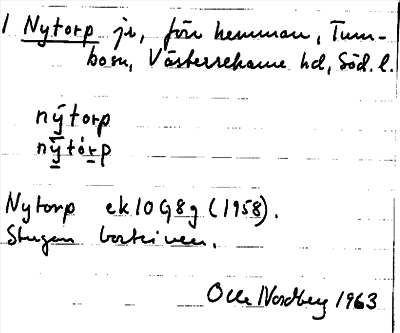 1 Nytorp jr, förr hemman, Tum-
bosn, Västerrekarne hd, Söd. l.
nýtorp
nýtórp
Nytorp ek 10 G 8 g (1958).
Stugan borta
Olle Nordberg 1963